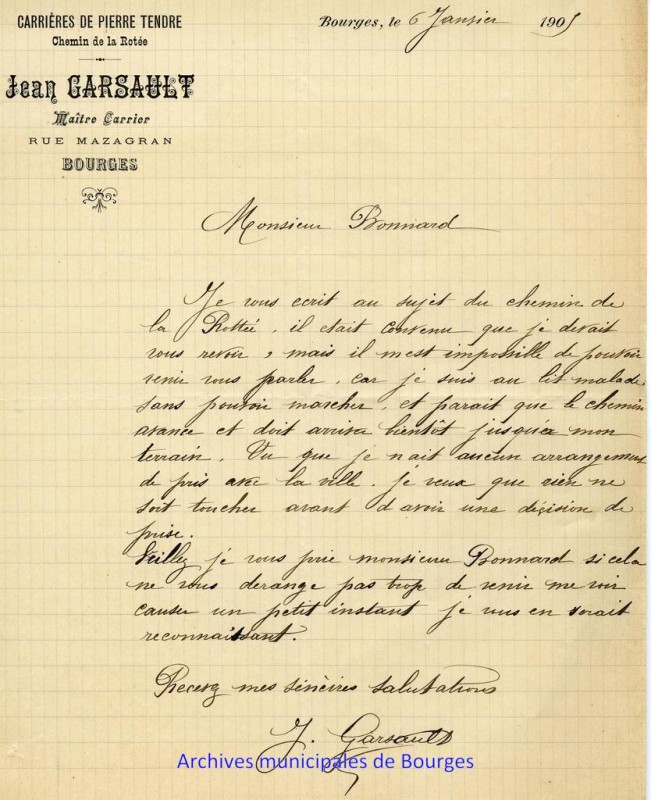 CARRIÈRES DE PIERRE TENDRE
Chemin de la Rotée
Jean GARSAULT
Maître Carrier
RUE MAZAGRAN
BOURGES
Bourges, le 6 Janvier 1905
Monsieur Bonnard
Je vous ecrit au sujet du chemin de
la Rottée, il était convenu que je devait
vous revoir, mais il mest impossible de pouvoir
venir vous parler, car je suis au lit malade
sans pouvoir marcher, et parait que le chemin
avance et doit arriver bientôt jusquéa mon
terrain. Vu que je n'ait aucun arrangement
de pris avec la ville, je veux que rien ne
soit toucher avant d avoir une décision de
prise.
Veillez je vous prie monsieur Bonnard si cela
ne vous derange pas trop de venir me voir
causer un petit instant je vous en serait
reconnaissant.
Recevez mes sincères salutations
J. Garsault
Archives municipales de Bourges